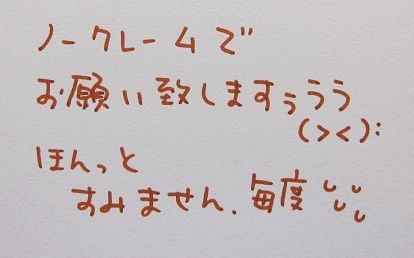 ノークレームで
お願い致しますぅぅぅ
(><):
ほんっと
すみません、毎度